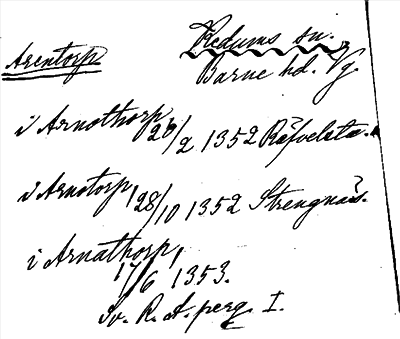 Arentorp
Redums sn.
Barne hd. Vg.
i Arnothorp
26/2 1352 Räfvelsta.
i Arnotorp,
28/10 1352 Strengnäs.
i Arnathorp,
17/6 1353.
Sv. R. A. perg. I.